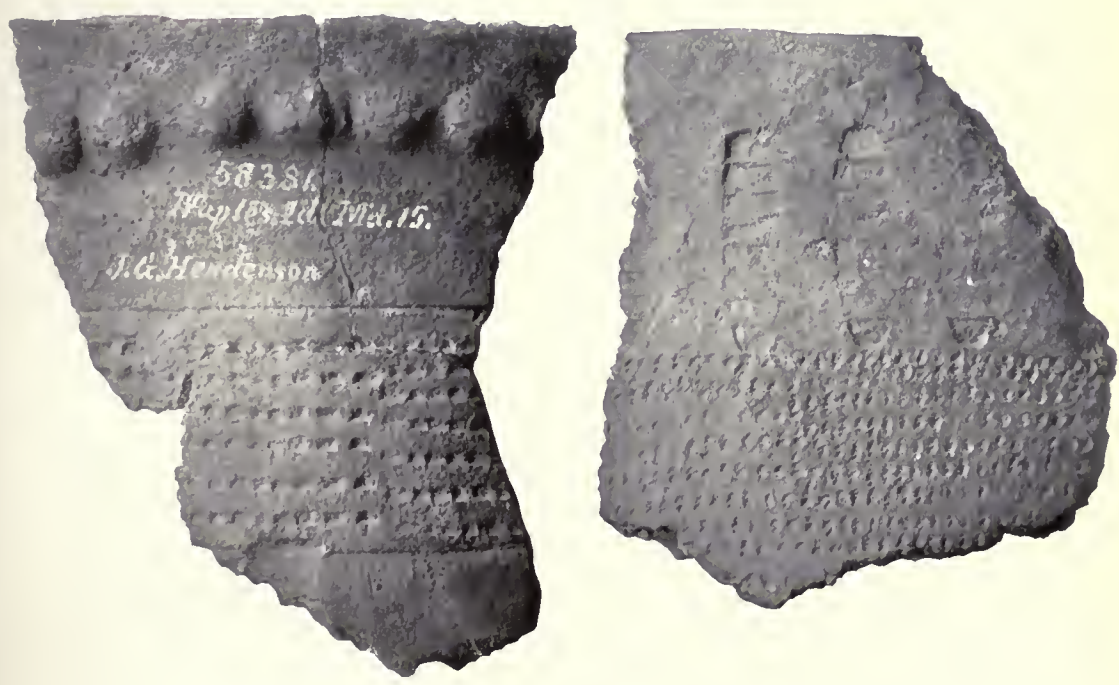 58381.
Naples, Ill. Md. 15.
J.G. Henderson